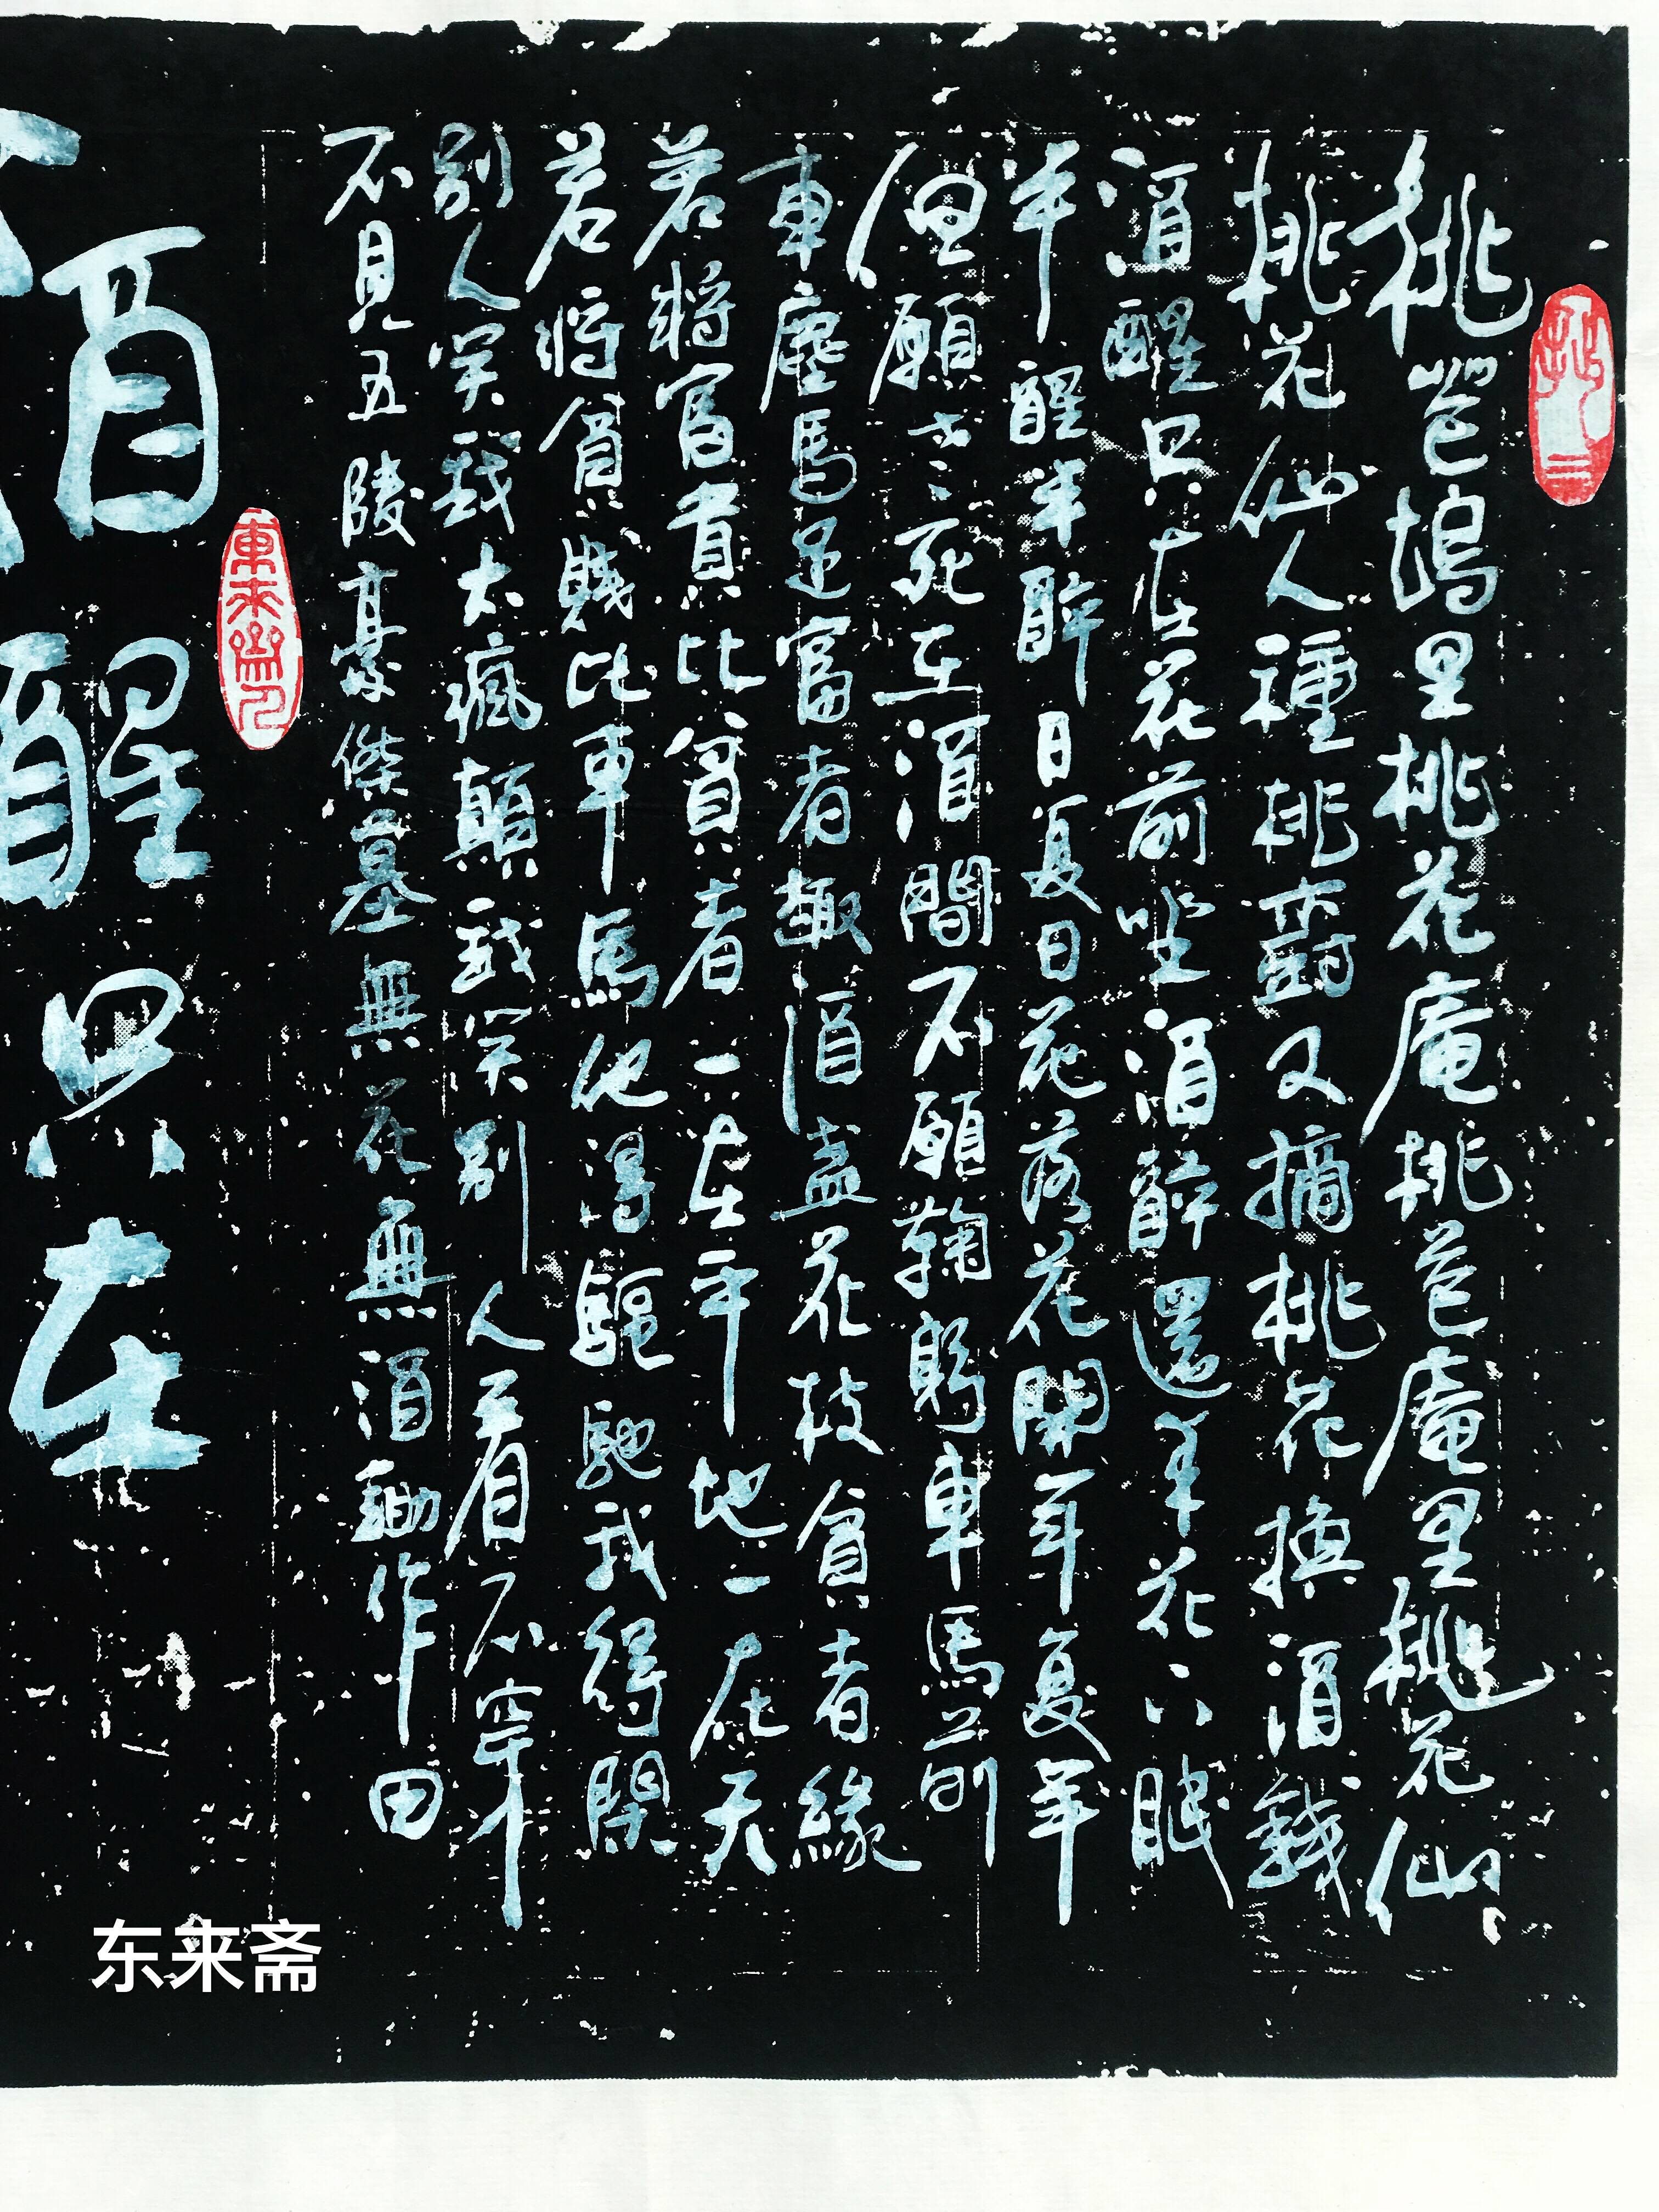 桃花塢里桃花庵桃花庵里桃花仙
桃花仙人種桃樹又摘桃花換酒錢
酒醒只在花前坐酒醉還來花下眠
半醒半醉日复日花落花開年复年
但願老死在酒間不願鞠躬車馬前
車塵馬足富者趣酒盞花枝貧者緣
若將富貴比貧者一在平地一在天
若將貧賤比車馬他得驅馳我得閑
别人笑我太瘋顛我笑别人看不穿
不見五陵豪傑墓無花無酒鋤作田
酒醒只在
东来斋